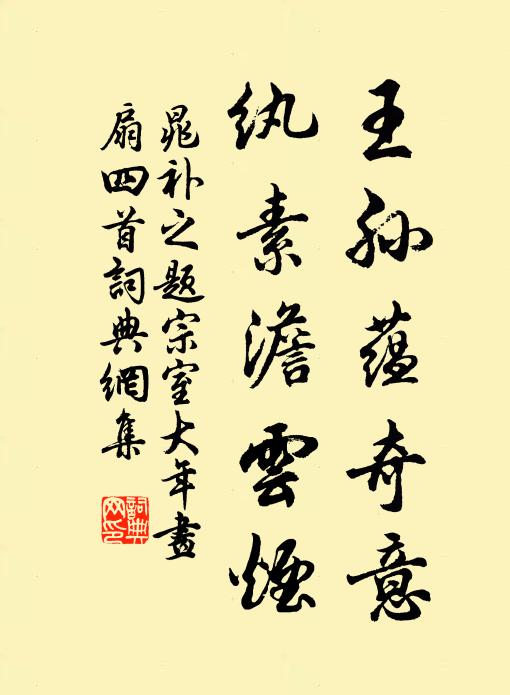 王孙蕴奇意
纨素澹雲煙
晁补之题宗室大年畫
扇四首詞典網集
詞典
网印